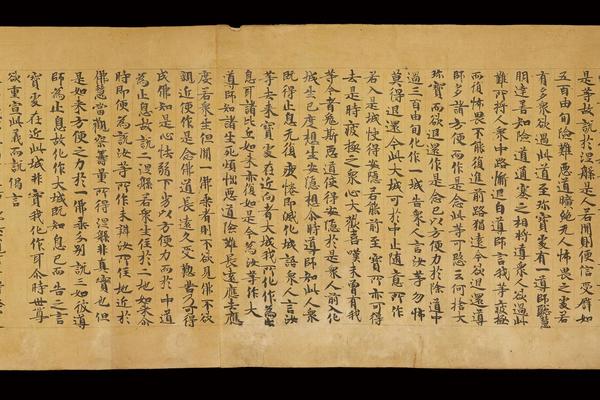 是等故說於涅槃是人若聞則便信受譬如
五百由旬險難惡道曠絕无人怖畏之處若
有多衆欲過此道至珍寶處有一導師聰慧
明達善知險道通塞之相將導衆人欲過此
難所將人衆中路懈退白導師言我等疲極
而復怖畏不能復進前路猶遠今欲退還導
師多諸方便而作是念此等可愍云何捨大
珍寶而欲退還作是念已以方便力於險道中
過三百由旬化作一城告衆人言汝等勿怖
莫得退還今此大城可於中止隨意所作
若入是城快得安隱若能前至寶所亦可得
去是時疲極之衆心大歡喜嘆未曾有我
等今者免斯惡道快得安隱於是衆人前入化
城生已度想生安隱想尒時導師知此人衆
既得止息无復疲惓即滅化城語衆人言汝
等去來寶處在近向者大城我所化作為止
息耳諸比丘如來亦復如是今為汝等作大
導師知諸生死煩惱惡道險難長遠應去應
度若衆生但聞一佛乘者則不欲見佛不欲
親近便作是念佛道長遠久受懃苦乃可得
成佛知是心怯弱下劣以方便力而於中道
為止息故說二涅槃若衆生住於二地如來尒
時即便為說汝等所作未辦汝所住地近於
佛慧當觀察籌量所得涅槃非真實也但
是如來方便之力於一佛乘分別說三如彼導
師為止息故化作大城既知息已而告之言
寶處在近此城非實我化作耳尒時世尊
欲重宣此義而說偈言